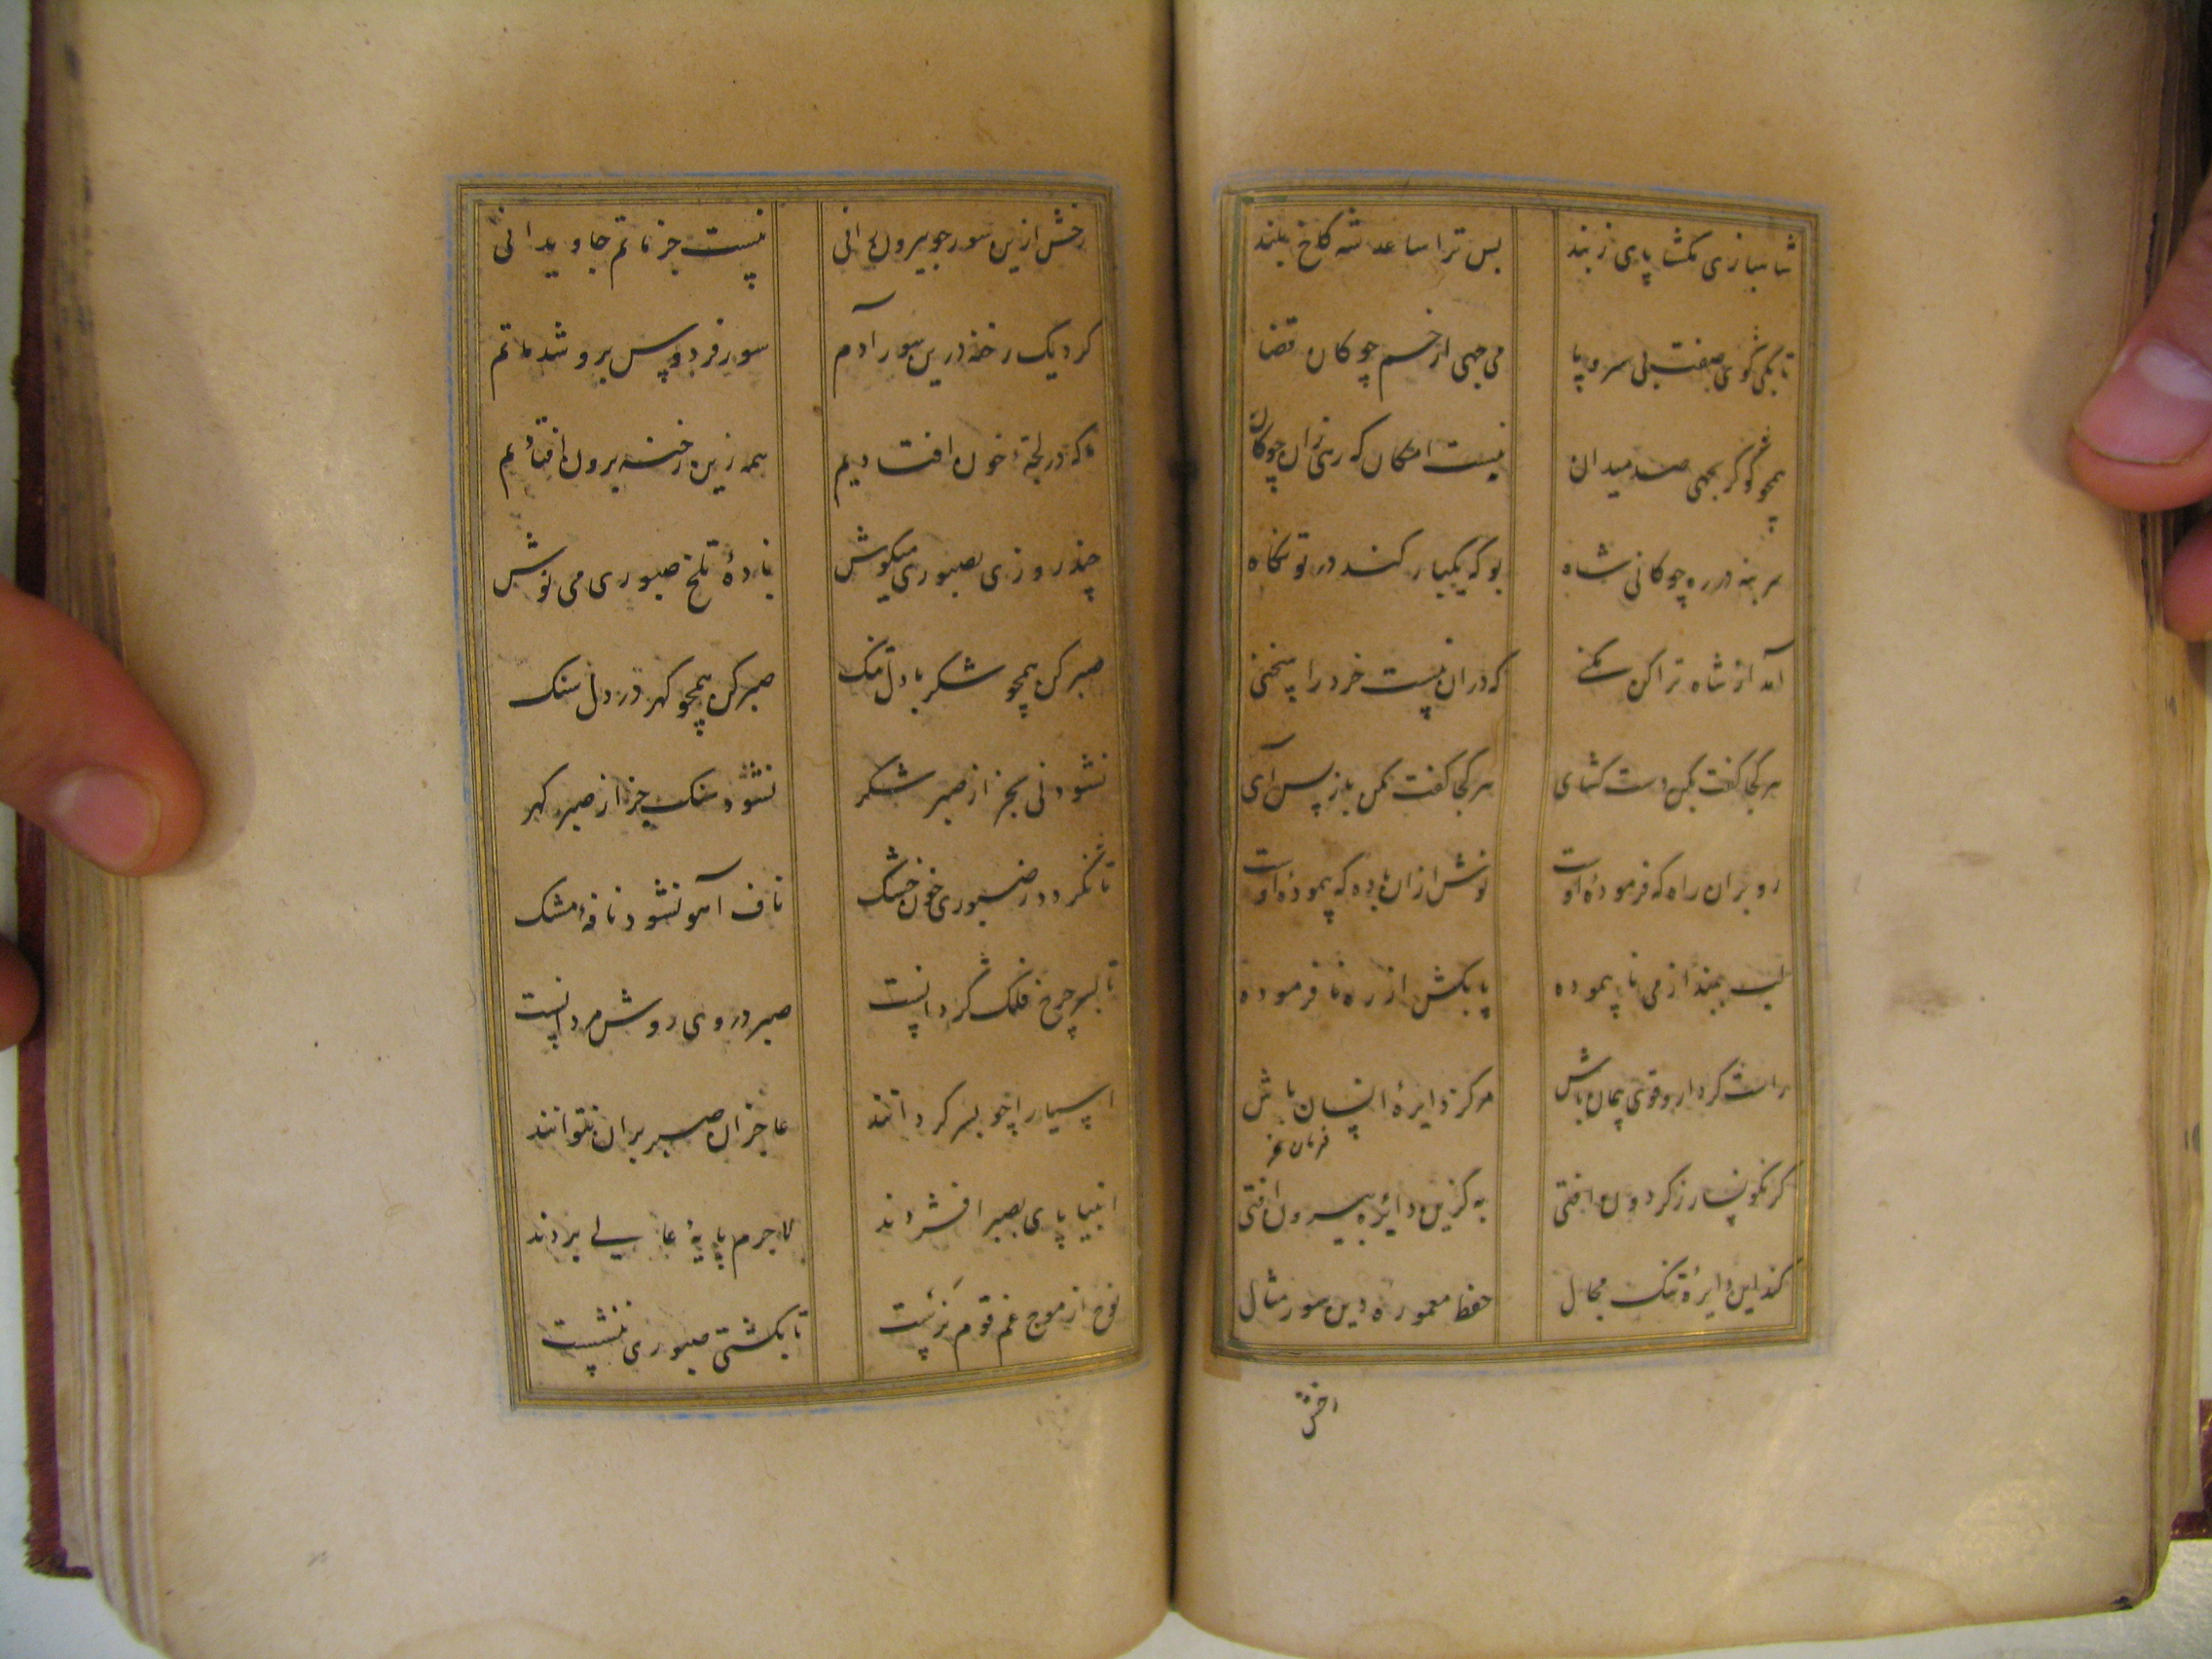 شاهبازی بگشا پای ز بند بس ترا ساعد شه کاخ بلند
تا بکی گوی صفت بی سر و پا می جهی از خم چوکان قضا
همچو گو گر بجهی صد میدان نیست امکان که رهی زان چوکان
سر بنه در ره چوکانی شاه بو که یکبار کند در تو نکاه
آمد از شاه ترا کن مکنی که در ان نیست خرد را سخنی
هر کجا کفت بکن دست کشای هر کجا کفت مکن باز پس آی
رو بران راه که فرموده اوست نوش ازان باده که پیموده اوست
لب ببند از می ناپیموده پا بکش از ره نافرموده
راست کردار و قوی پیمان باش مرکز دایرهٔ انسان باش
فرمان
کر نکونسار ز کردون افتی به کزین دایره بیرون افتی
کند این دایرهٔ تنک مجال حفظ معموره دین سور مثال
رخش
رخش ازین سور چو بیرون رانی نیست جز ماتم جاویدانی
کرد یک رخنه درین سور آدم سور فردوس برو شد ماتم
ما که در لجهٔ خون افتادیم همه زین رخنه برون افتادیم
چند روزی بصبوری میکوش بادهٔ تلخ صبوری می نوش
صبر کن همچو شکر با دل تنک صبر کن همچو کهر در دل سنک
نشود نی بجز از صبر شکر نشود سنک جز از صبر کهر
تا نکردد ز صبوری خون خشک ناف آهو نشود نافهٔ مشک
تا بسر چرخ فلک کردانست صبر در وی روش مردانست
آسیا را چو بسر کردانند عاجزان صبر بران نتوانند
انبیا پای بصبر افشردند لاجرم پایهٔ عالی بردند
نوح از موج غم قوم نرست تا بکشتی صبوری ننشست